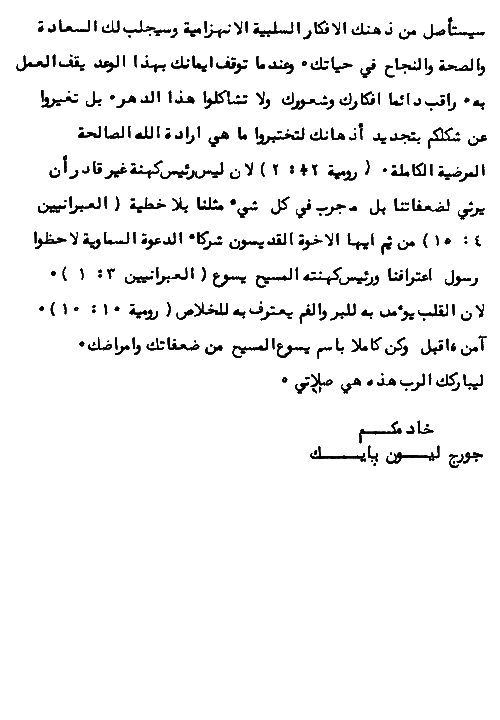 سيستأصل من ذهنك الافكار السلبية الانهزامية وسيجلب لك السعادة
والصحة والنجاح في حياتك٠ وعندما توقف ايمانك بهذا الوعد يقف العمل
به٠ راقب دائما افكارك وشعورك ولا تشاكلوا هذا الدهر٠ بل تغيروا
عن شكلكم بتجديد أذهانك لتختبروا ما هي ارادة الله الصالحة
المرضية الكاملة٠ ( رومية ١٢ : ٢ ) لان ليس رئيس كهنة غير قادر أن
يرثي لضعفاتنا بل مجرب في كل شيء مثلنا بلا خطية ( العبرانيين
٤ : ١٥ ) من ثم ايها الاخوة القديسون شركاء الدعوة السماوية لاحظوا
رسول اعترافنا ورئيس كهنته المسيح يسوع ( العبرانيين ٣ : ١ )٠
لان القلب يؤمن به للبر والفم يعترف به للخلاص ( رومية ١٠ : ١٠ )٠
آمن ٬اقبل وكن كاملا باسم يسوع المسيح من ضعفاتك وامراضك٠
ليباركك الرب هذه هي صلاتي ٠
خادمكـــم
جورج ليـــون بايـــك